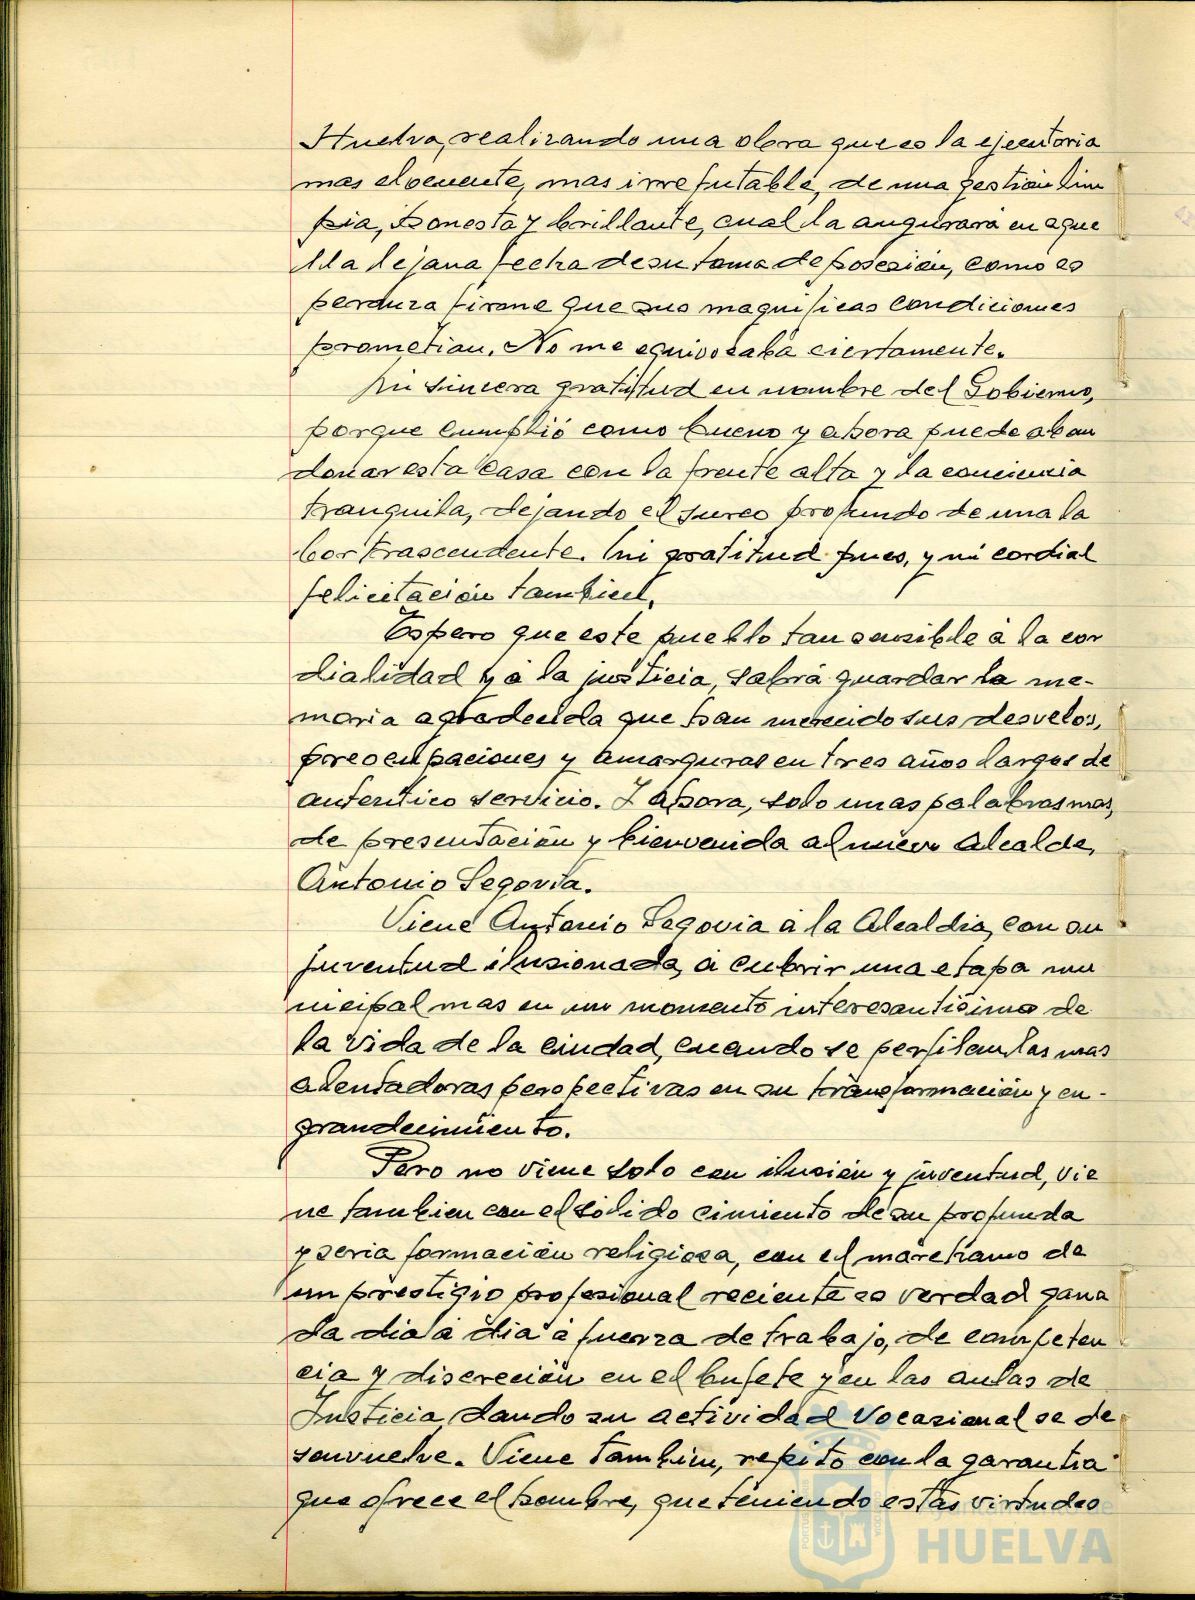 Huelva, realizando una obra que es la ejecutoria
mas elocuente, mas irrefutable, de una gestión lim
pia, honesta y brillante, cual la augurara en aque
lla lejana fecha de su toma de posesión, como es
peranza firme que sus magnificas condiciones
prometian. No me equivocaba ciertamente.
Mi sincera gratitud en nombre del Gobierno,
porque cumplió como bueno y ahora puede aban
donar esta casa con la frente alta y la conciencia
tranquila, dejando el surco profundo de una la
bor trascendente. Mi gratitud pues, y mi cordial
felicitación tambien.
Espero que este pueblo tan sensible á la cor
dialidad y á la justicia, sabrá guardar la me-
moria agradecida que han merecido sus desvelos,
preocupaciones y amarguras en tres años largos de
autentico servicio. Y ahora, solo unas palabras mas,
de presentación y bienvenida al nuevo Alcalde,
Antonio Segovia.
Viene Antonio Segovia á la Alcaldia, con su
juventud ilusionada, á cubrir una etapa mu
nicipal mas en un momento interesantisimo de
la vida de la ciudad, cuando se perfilan las mas
alentadoras perspectivas en su transformación y en-
grandecimiento.
Pero no viene solo con ilusión y juventud, vie
ne tambien con el sólido cimiento de su profunda
y seria formación religiosa, con el marchamo de
un prestigio profesional reciente es verdad gana
do dia á dia á fuerza de trabajo, de competen
cia y discreción en el bufete y en las aulas de
Justicia, donde su actividad vocasional se de
senvuelve. Viene tambien, repito con la garantia
que ofrece el hombre, que teniendo estas virtudes
Ayuntamiento de
HUELVA